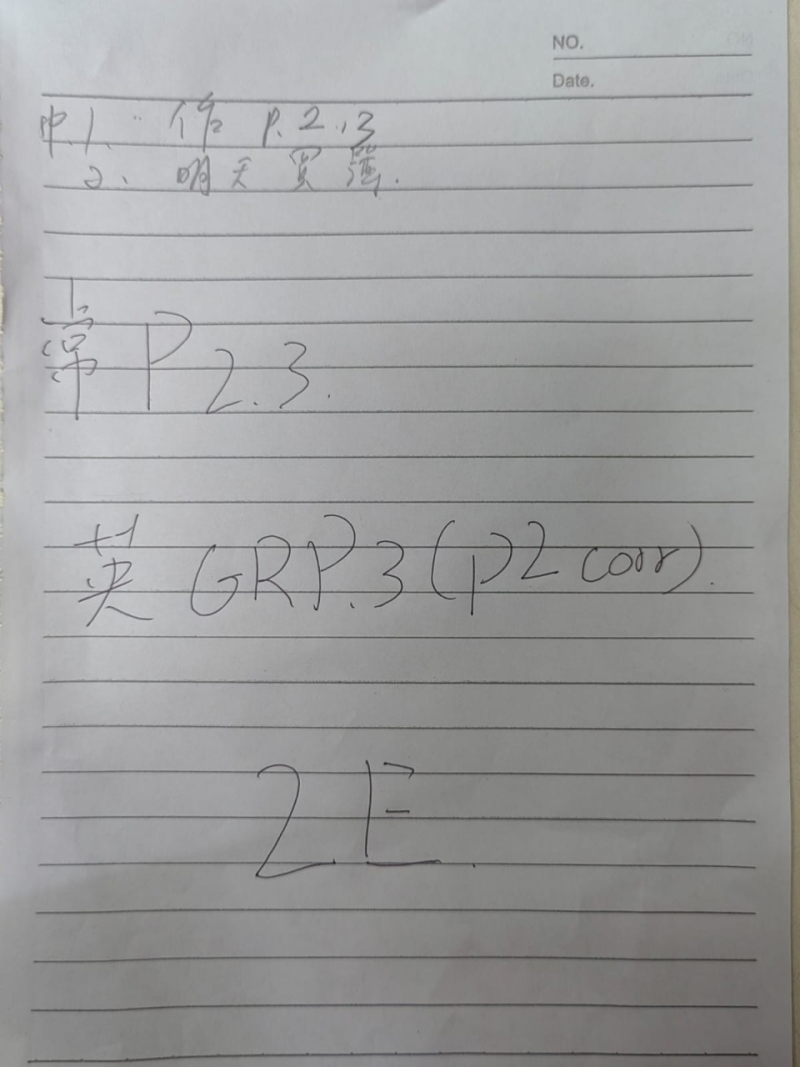 NO.
Date.
中 1. 作 P. 2.,3
2. 明天買簿.
常 P 2.3.
英 GR P.3 (p2 corr).
2E.